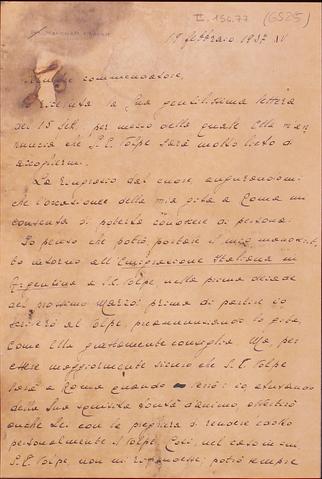 II. 156.77 (GS25)
19 febbraio 1937 XV
commendatore,
la Sua gentilissima lettera
del 15 per mezzo della quale Ella mi an-
nuncia che S.E. Volpe sarà molto lieto di
accogliermi.
La ringrazio dal cuore, augurandomi
che l'occasione della mia gita a Roma mi
consenta di poterla conoscere di persona.
Io penso che potrò portare il mio manoscrit-
to intorno all'Emigrazione Italiana in
Argentina a S.E. Volpe, nella prima decade
del prossimo Marzo: prima di partire io
scriverò al Volpe, preannunziando la gita,
come Ella gentilmente consiglia. Ma, per
essere maggiormente sicuro che S.E. Volpe
sarà a Roma quando verrò io, abusando
della Sua squisita bontà d'animo,
anche Lei con la preghiera di rendere
personalmente il Volpe. Così, nel caso in cui
S.E. Volpe non mi rispondesse, potrò sempre